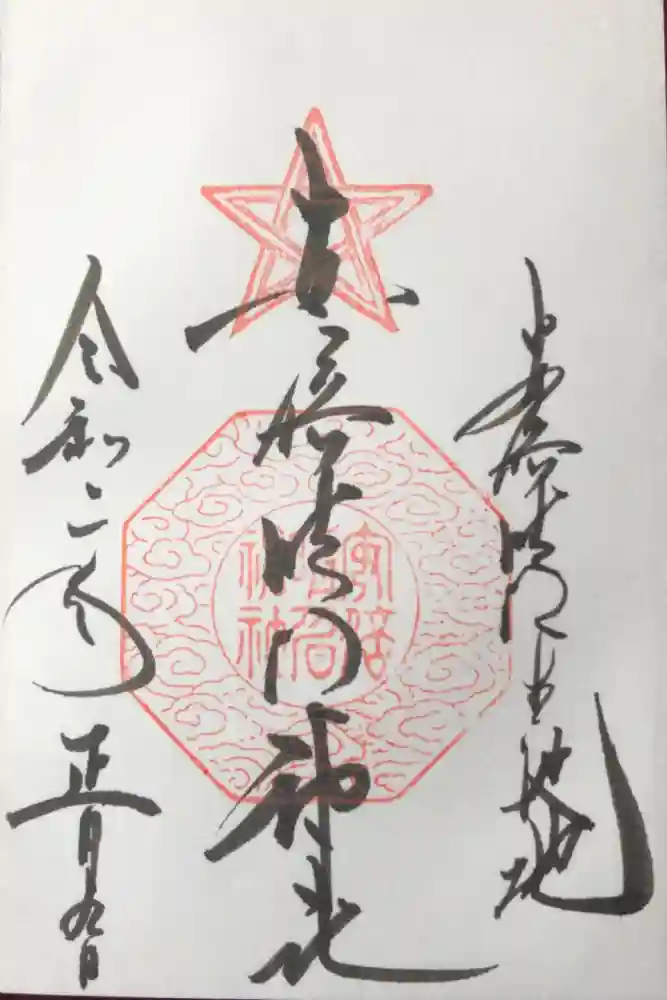 安倍晴明生誕地
安倍晴明神社
令和二年正月九日
安倍
晴明
神社